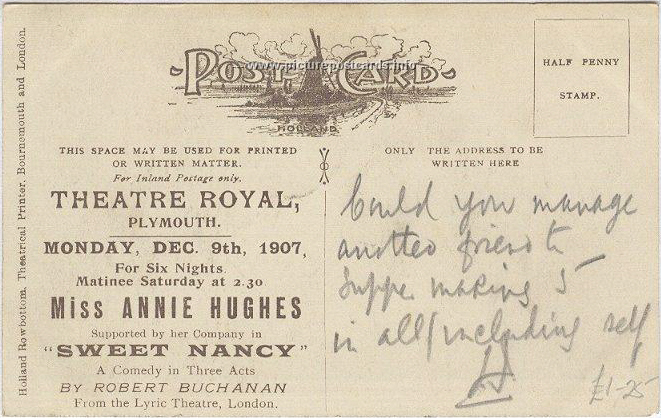 POST CARD
www.picturepostcards.info
HOLLAND
HALF PENNY
STAMP.
THIS SPACE MAY BE USED FOR PRINTED
OR WRITTEN MATTER.
For Inland Postage only.
THEATRE ROYAL,
PLYMOUTH.
MONDAY, DEC. 9th, 1907,
For Six Nights.
Matinee Saturday at 2.30
Miss ANNIE HUGHES
Supported by her Company in
"SWEET NANCY"
A Comedy in Three Acts
BY ROBERT BUCHANAN
From the Lyric Theatre, London.
ONLY THE ADDRESS TO BE
WRITTEN HERE
Could you manage
another friend to
suppe making 5
in all (including self
£1-25
Holland Rowbottom, Theatrical Printer, Bournemouth and London.